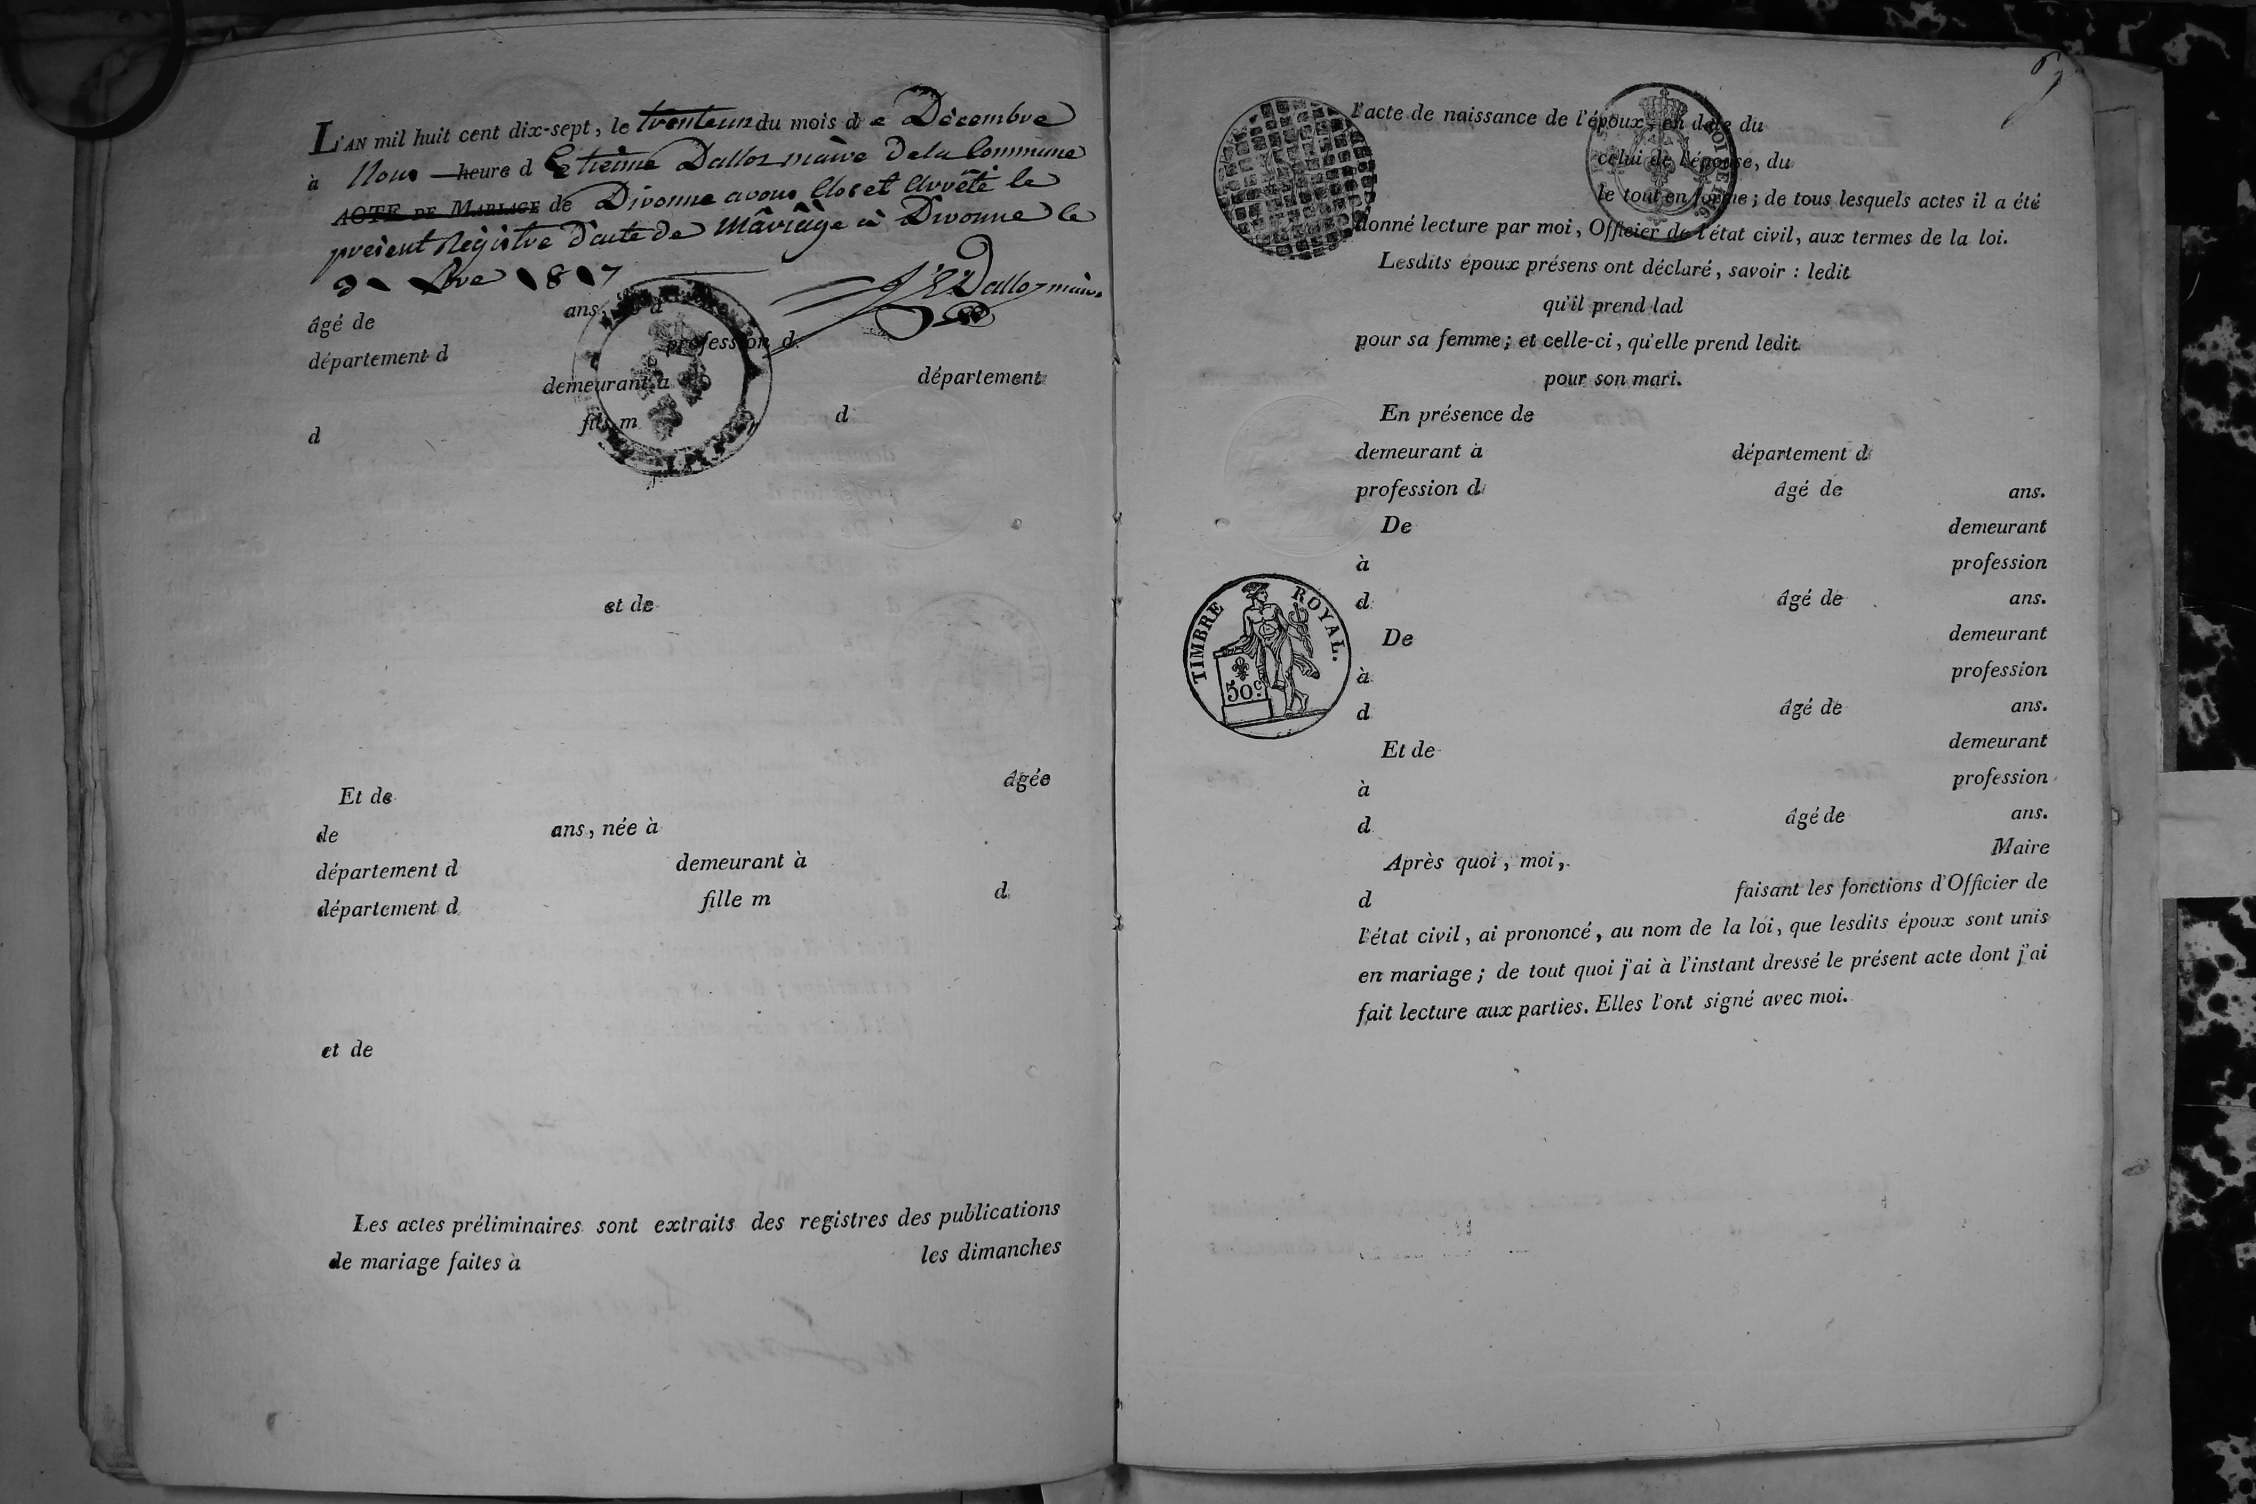 L'AN mil huit cent dix-sept, le trenteun du mois de Décembre
à Nous heure d Etieine Dalloz maire De la Commune
ACTE DE MARIAGE de Divonne avons Clos et Arrêté le
present Registre d'acte de Mâriâge à Divonne le
1817
JE Dalloz maire
âgé de ans, d
département d profession d
demeurant à département
d fils m d
et de
Et de âgée
de ans, née à
département d demeurant à
département d fille m d
et de
Les actes préliminaires sont extraits des registres des publications
de mariage faites à les dimanches
l'acte de naissance de l'époux, en date du
celui de l'épouse, du
le tout en forme ; de tous lesquels actes il a été
donné lecture par moi, Officier de l'état civil, aux termes de la loi.
Lesdits époux présens ont déclaré, savoir : ledit
qu'il prend lad
pour sa femme ; et celle-ci, qu'elle prend ledit
pour son mari.
En présence de
demeurant à département d
profession d âgé de ans.
De demeurant
à profession
d âgé de ans.
TIMBRE ROYAL.
50 c.
De demeurant
à profession
d âgé de ans.
Et de demeurant
à profession
d âgé de ans.
Après quoi, moi, Maire
d faisant les fonctions d'Officier de
l'état civil, ai prononcé, au nom de la loi, que lesdits époux sont unis
en mariage ; de tout quoi j'ai à l'instant dressé le présent acte dont j'ai
fait lecture aux parties. Elles l'ont signé avec moi.